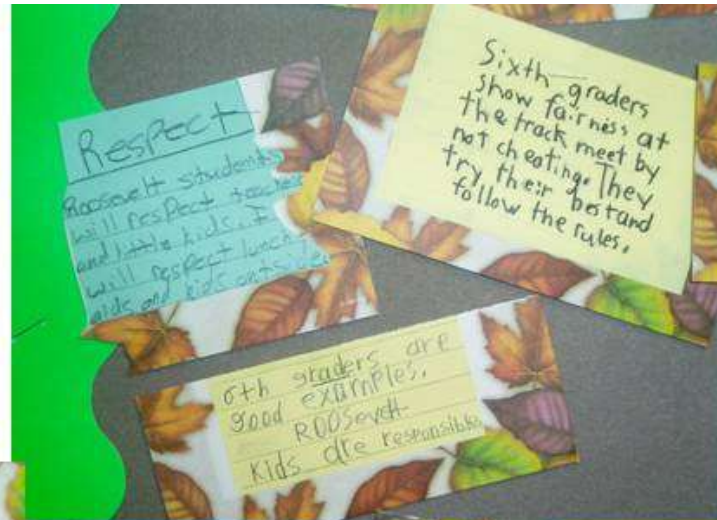 Respect
Roosevelt students
will respect teachers
and little kids. I
will respect lunch
aids and kids outside
Sixth graders
show fairness at
the track meet by
not cheating. They
try their best and
follow the rules.
6th graders are
good examples.
ROOSevelt
Kids are responsible